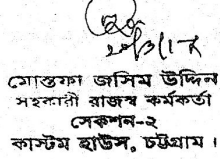 মোস্তফা জসিম উদ্দিন
সহকারী রাজস্ব কর্মকর্তা
সেকশন-২
কাস্টম হাউস, চট্টগ্রাম।